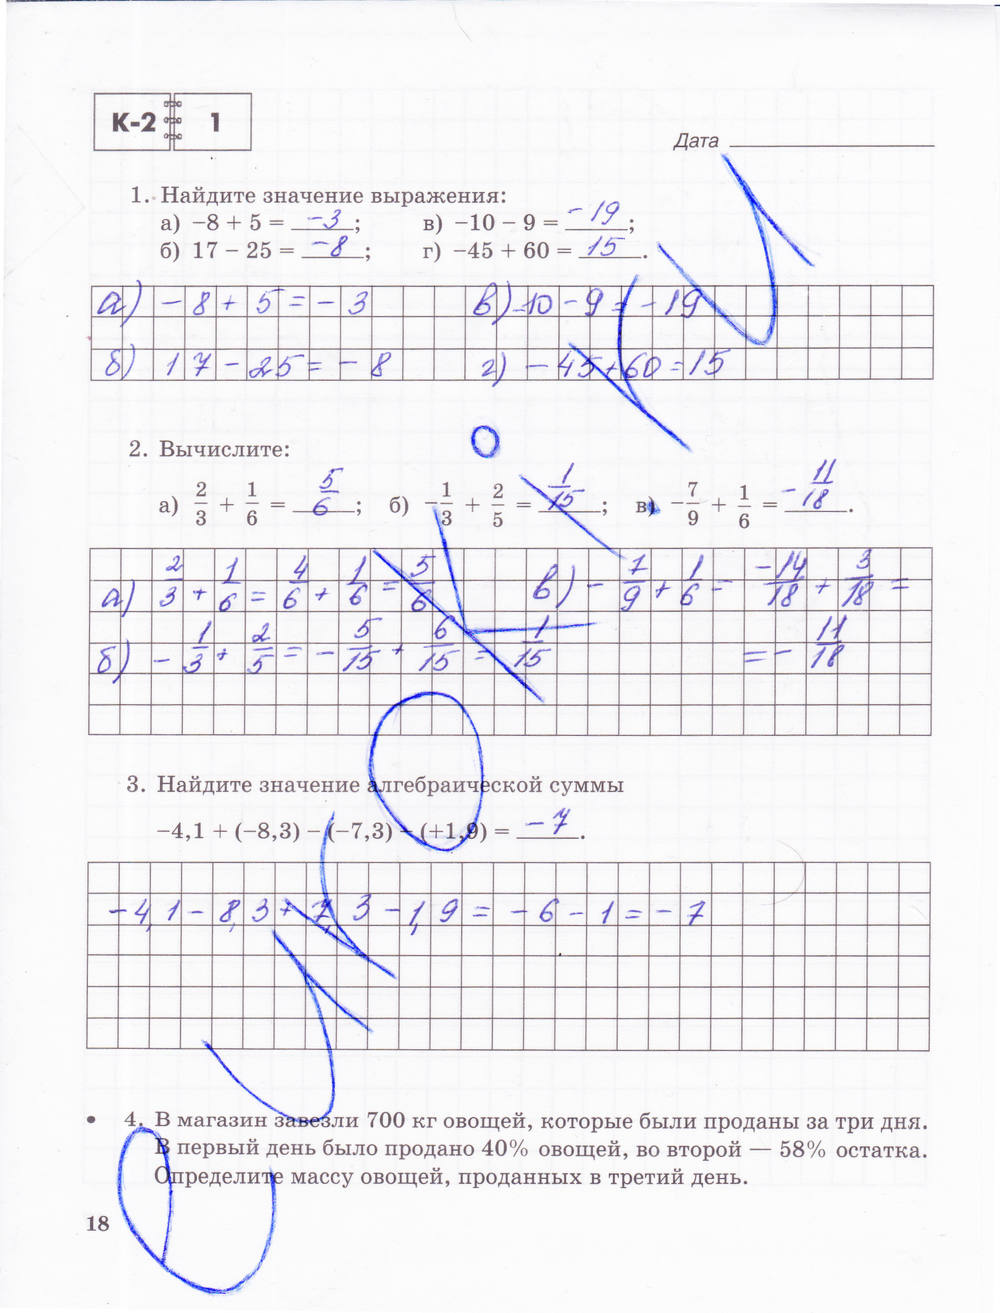 К-2 1
Дата
1. Найдите значение выражения:
а) −8 + 5 = −3; в) −10 − 9 = −19;
б) 17 − 25 = −8; г) −45 + 60 = 15.
а) −8 + 5 = −3 в) −10 − 9 = −19
б) 17 − 25 = −8 г) −45 + 60 = 15
2. Вычислите:
а) 2/3 + 1/6 = 5/6; б) −1/3 + 2/5 = 1/15; в) −7/9 + 1/6 = −11/18.
а) 2/3 + 1/6 = 4/6 + 1/6 = 5/6 в) −7/9 + 1/6 = −14/18 + 3/18 =
б) −1/3 + 2/5 = −5/15 + 6/15 = 1/15 = −11/18
3. Найдите значение алгебраической суммы
−4,1 + (−8,3) − (−7,3) − (+1,9) = −7.
−4,1 − 8,3 + 7,3 − 1,9 = −6 − 1 = −7
• 4. В магазин завезли 700 кг овощей, которые были проданы за три дня.
В первый день было продано 40% овощей, во второй — 58% остатка.
Определите массу овощей, проданных в третий день.
18